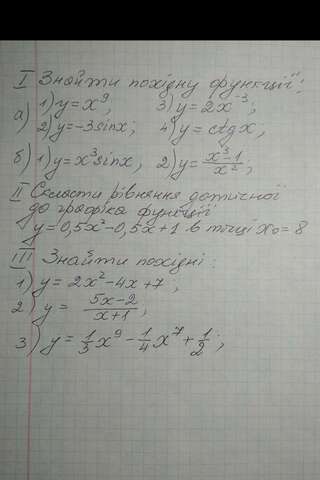 I Знайти похідну функції:
а) 1) y = x⁹; 3) y = 2x⁻³;
2) y = -3sinx; 4) y = ctgx,
б) 1) y = x³sinx, 2) y = (x³-1)/x²;
II Скласти рівняння дотичної
до графіка функції
y = 0,5x² - 0,5x + 1 в точці x₀ = 8
III Знайти похідні:
1) y = 2x² - 4x + 7;
2) y = (5x-2)/(x+1);
3) y = 1/3 x⁹ - 1/4 x⁷ + 1/2;